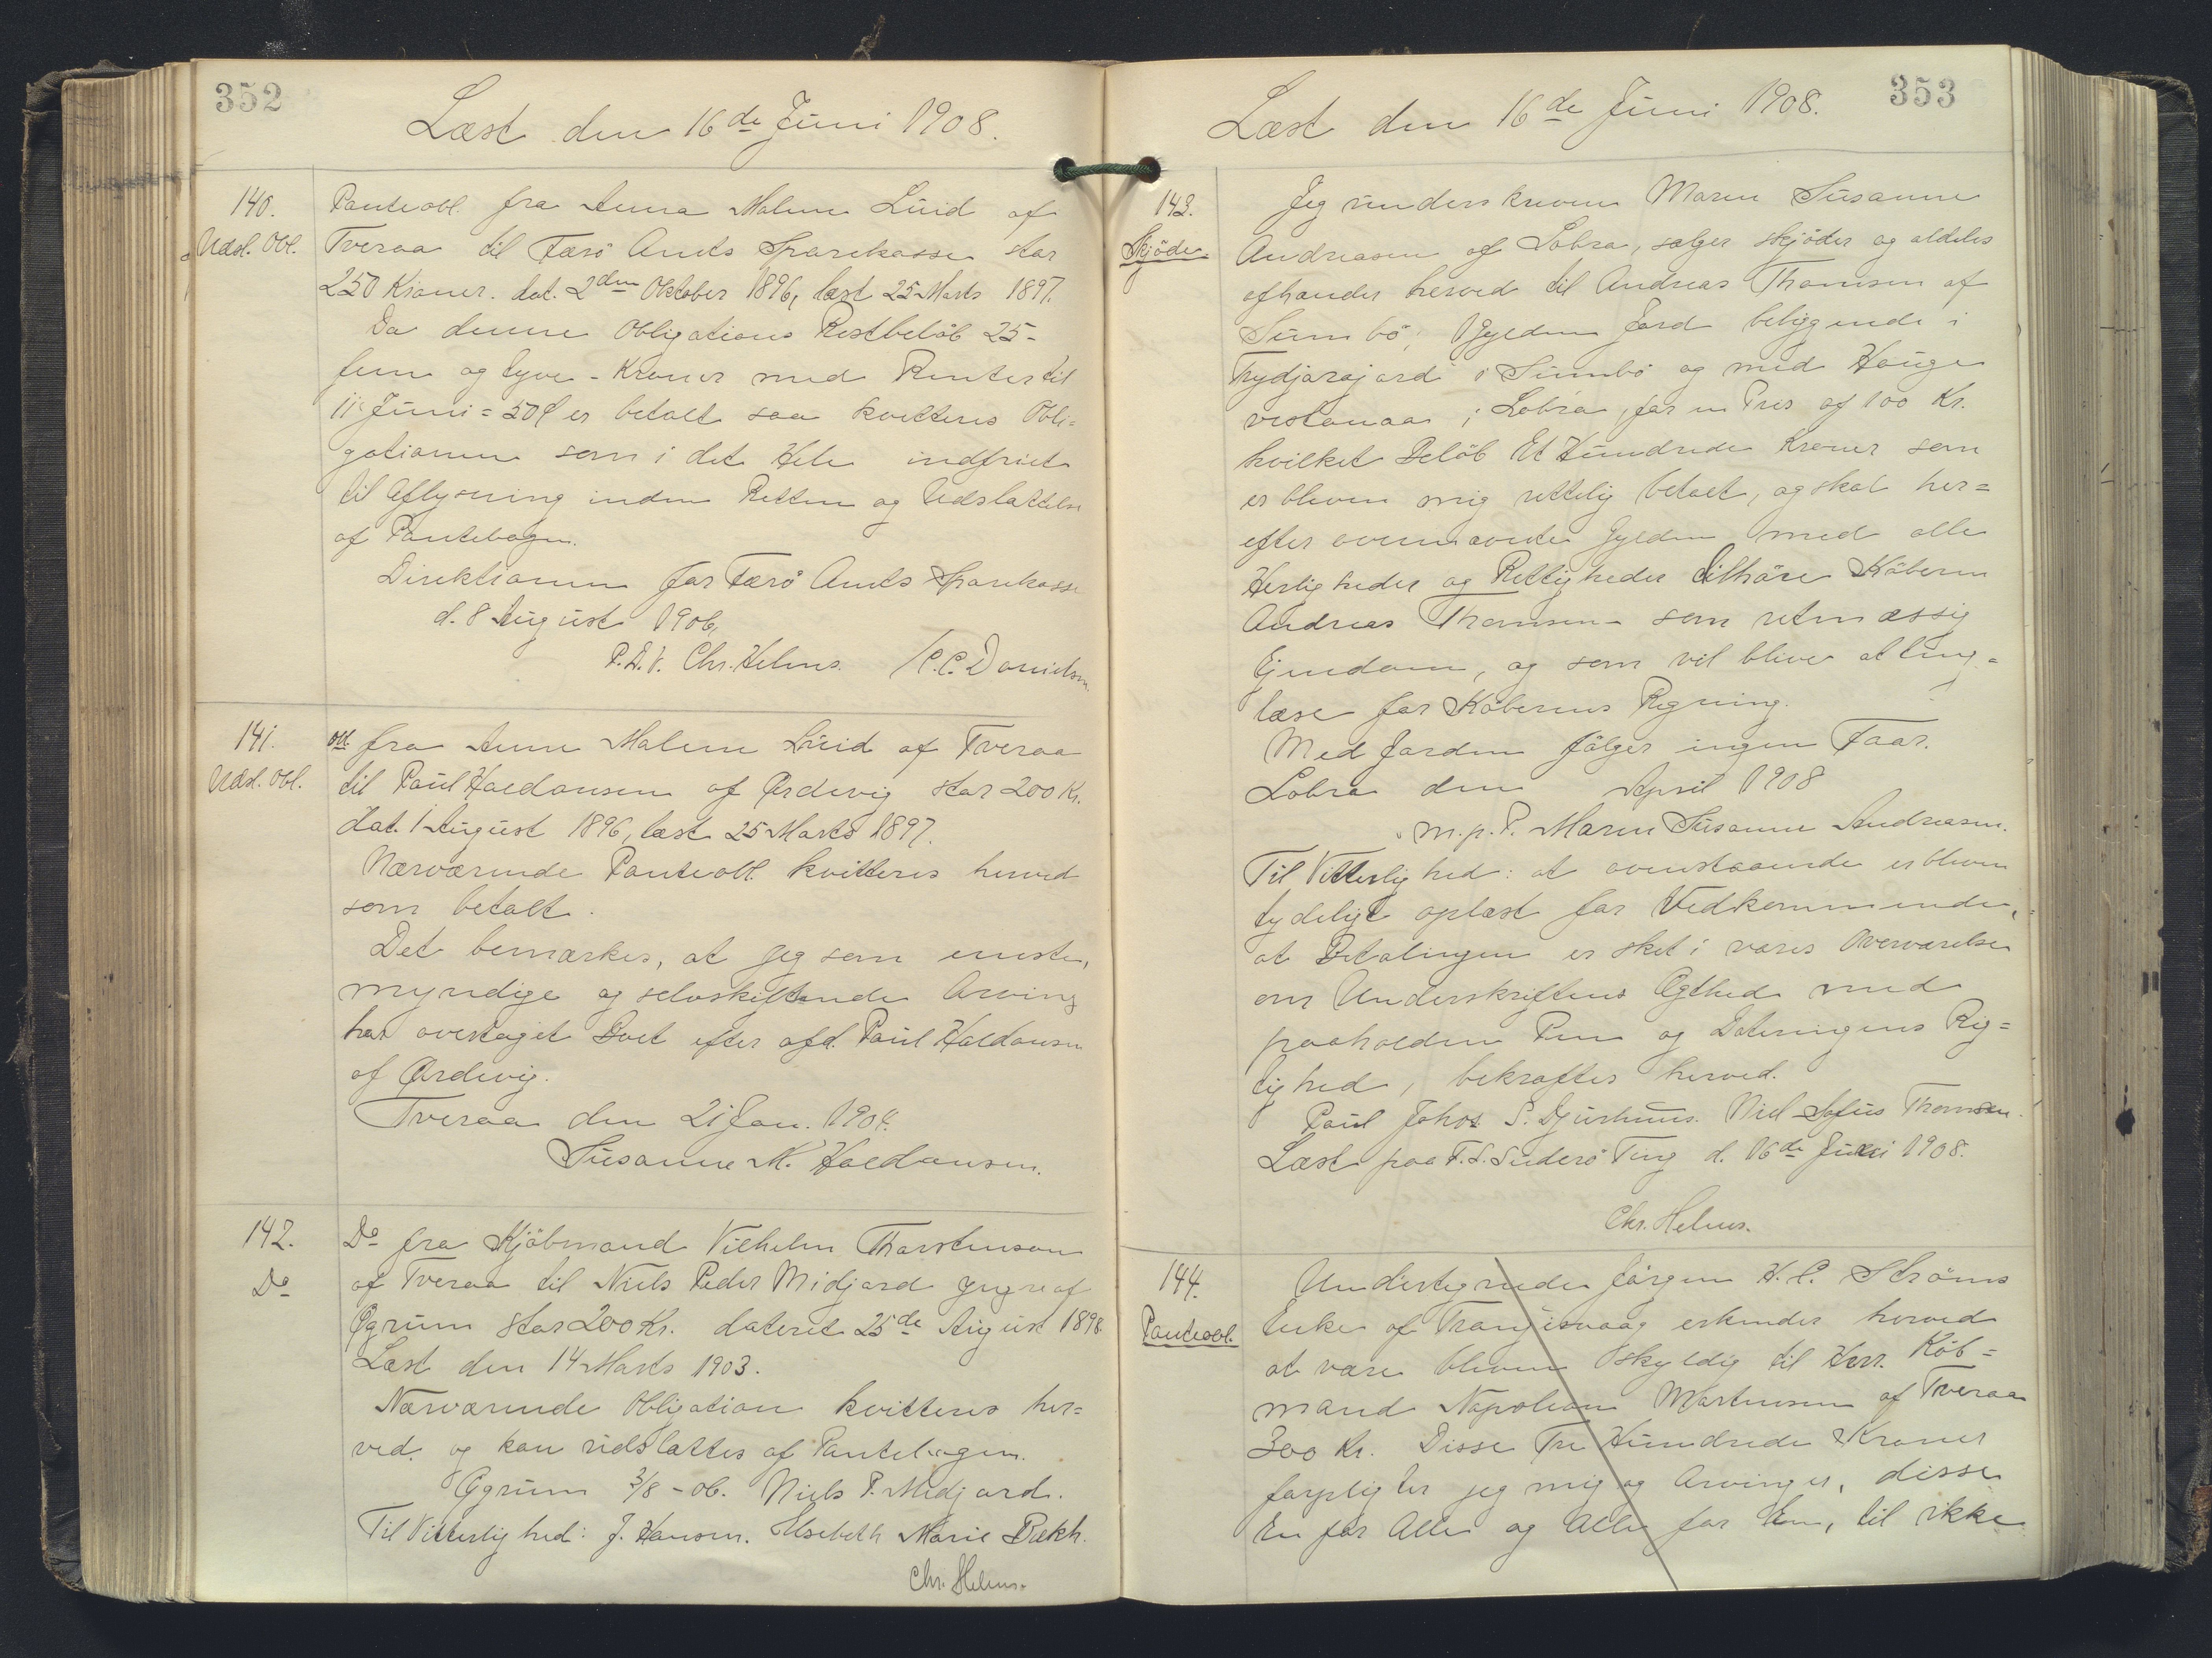 352
Læst den 16de Juni 1908.
140.
Udsl. Obl.
Panteobl. fra Anna Malene Luid af
Tveraa til Færø Amts Sparekasse stor
250 Kroner. dat. 2den Oktober 1896, læst 25 Marts 1897.
Da denne Obligations Restbeløb 25-
fem og tyve - Kroner med Renter til
11 Juni = 50 Ø er betalt saa kvitteres Obli=
gationen som i det Hele indfriet
til Aflysning inden Retten og Udslettelse
af Pantebogen.
Direktionen for Færø Amts Sparekasse
d. 8 August 1906,
P.D.V. Chr. Helms. /C.C. Danielsen.
141.
Udsl. Obl.
Obl. fra Anne Malene Luid af Tveraa
til Paul Haldansen af Ørdevig stor 200 Kr.
dat. 1 August 1896, læst 25 Marts 1897.
Nærværende Panteobl. kvitteres herved
som betalt.
Det bemærkes, at jeg som eneste,
myndige og selvskiftende Arving
har overtaget Boet efter afd. Paul Haldansen
af Ørdevig.
Tveraa den 21 Jan. 1904.
Susanne M. Haldansen.
142.
Do
Do fra Kjøbmand Vilhelm Thorstensson
af Tveraa til Niels Peder Midjord yngre af
Øgrum stor 200 Kr. dateret 25de August 1898.
Læst den 14 Marts 1903.
Nærværende Obligation kvitteres her=
ved og kan udslettes af Pantebogen.
Øgrum 3/8 - 06. Niels P. Midjord.
Til Vitterlighed: J. Hansen. Elsebeth Marie Bækh.
Chr. Helms.
353
Læst den 16de Juni 1908.
143.
Skjøde.
Jeg underskreven Maren Susanne
Andreasen af Lobra, sælger skjøder og aldeles
afhænder herved til Andreas Thomsen af
Sumbø, 1 Gylden Jord beliggende i
Trydjarajord i Sumbø og med Hauge
vestanaa i Lobra, for en Pris af 100 Kr.
hvilket Beløb Et Hundrede Kroner som
er bleven mig rettelig betalt, og skal her=
efter ovennævnte Gylden med alle
Herligheder og Rettigheder tilhøre Køberen
Andreas Thomsen - som retmæssig
Ejendom, og som vil blive at ting=
læse for Køberens Regning.
Med Jorden følger ingen Faar.
Lobra den April 1908
m.p.P. Maren Susanne Andreasen.
Til Vitterlighed: at ovenstaaende er bleven
tydeligt oplæst for Vedkommende,
at Betalingen er sket i vores Overværelse
om Underskriftens Ægthed med
paaholden Pen og Dateringens Rig=
tighed, bekræftes herved.
Paul Johs. S. Djurhuus. Niel Sofus Thomsen.
Læst paa F.S. Suderø Ting d. 16de Juni 1908.
Chr. Helms.
144.
Panteobl.
Undertegnede Jørgen H. P. Strøms
Enke af Trangisvaag erkender herved
at være bleven skyldig til Herr. Køb=
mand Napoleon Mortensen af Tveraa
300 Kr. Disse Tre Hundrede Kroner
forpligter jeg mig og Arvinger, disse
En for Alle og Alle for En, til ikke